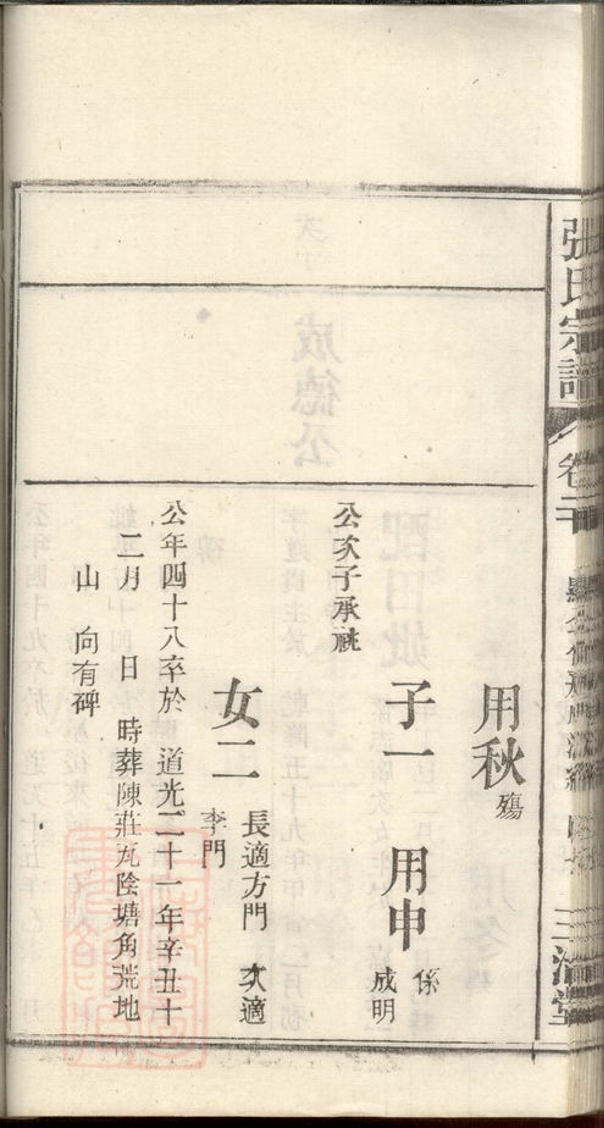 張氏宗譜
卷二十
三治堂
用秋 殤
子一 用申 係
成明
公次子承祧
女二 長適方門 次適
李門
公年四十八卒於 道光二十一年辛丑十
二月 日 時葬陳莊瓦陰塘角荒地
山 向有碑